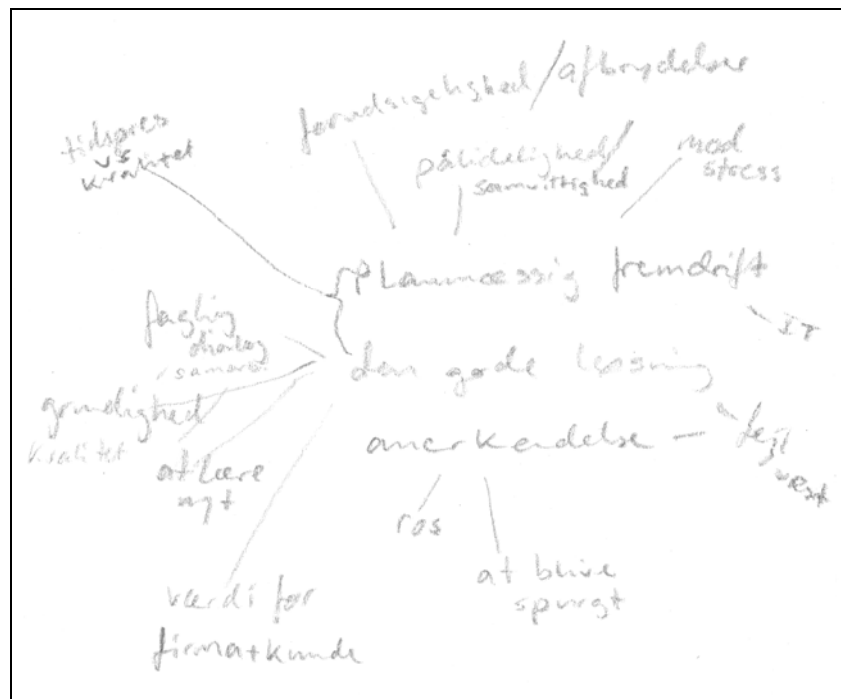 forudsigelighed/afbrydelse
tidspres
vs
kvalitet
pålidelighed/
samvittighed
mod
stress
planmæssig fremdrift
IT
faglig
dialog
den gode løsning
grundighed
kvalitet
at lære
nyt
anerkendelse
fejl
ros
at blive
spurgt
værdi for
firma+kunde